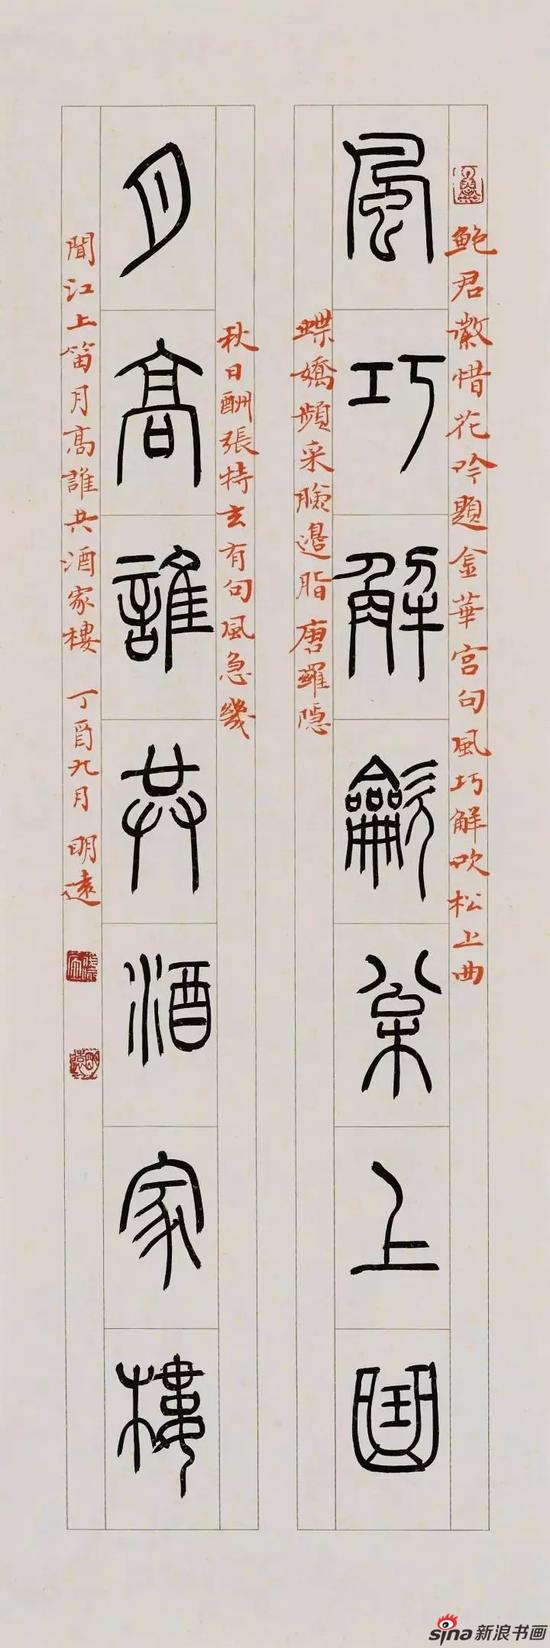 鮑君徽惜花吟題金華宫句風巧解吹松上曲
風巧解龡枀上曲
蝶嬌頻采臉邊脂唐羅隱
秋日酬張特玄有句風急幾
月高誰共酒家樓
聞江上笛月高誰共酒家樓 丁酉九月 明遠
sina新浪书画